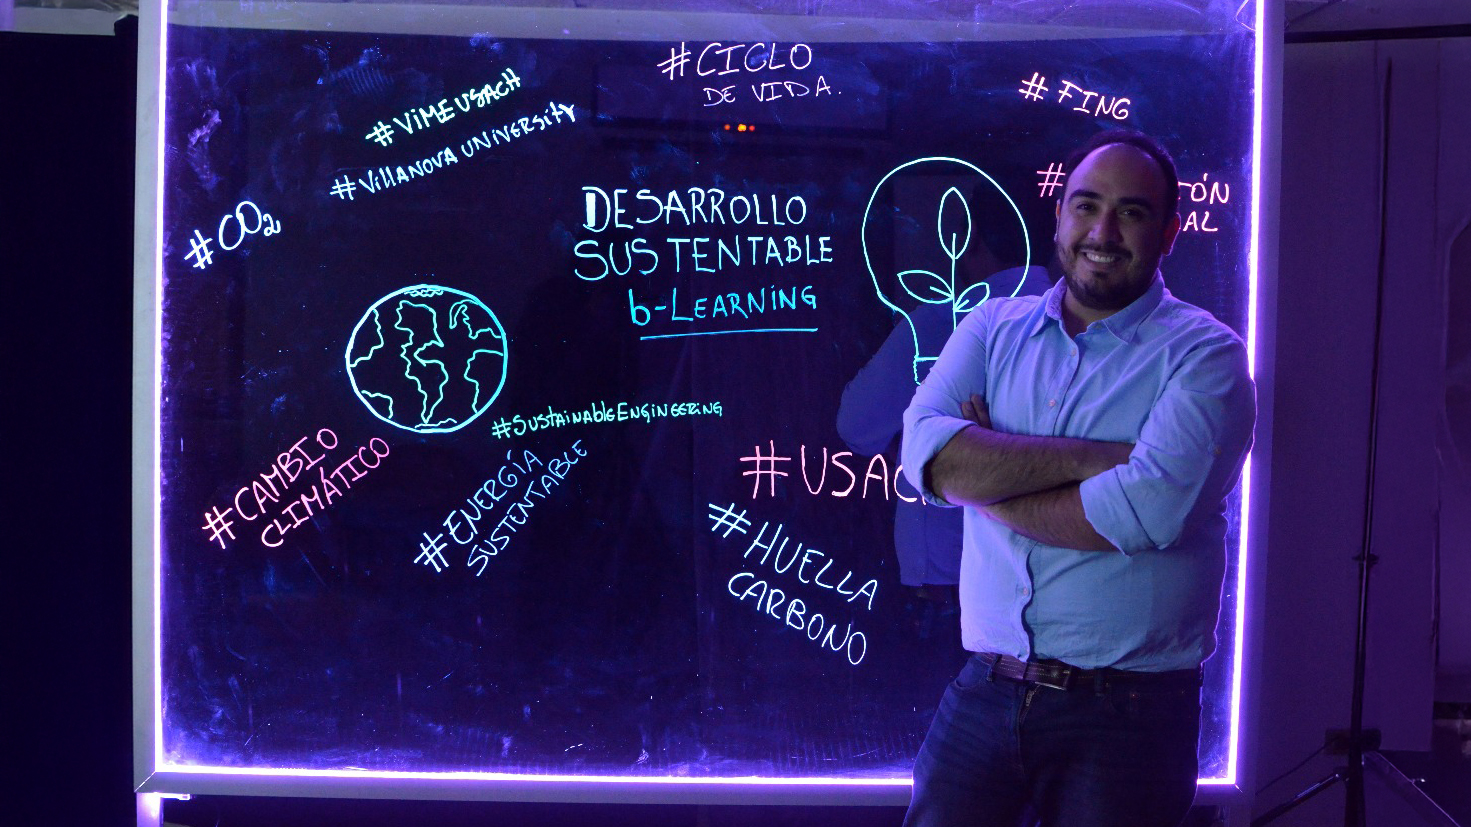 #CICLO
DE VIDA.
#FING
#ViMEUSACH
#VillANOVA UNiVERSitY
#CO2
DESARROLLO
SUSTENTABLE
b-LEARNiNG
#SUStAiNAblEENGiNEERiNG
#CAMBIO
CLIMÁTICO
#ENERGÍA
SUSTENTABLE
#USAC
#HUELLA
CARBONO